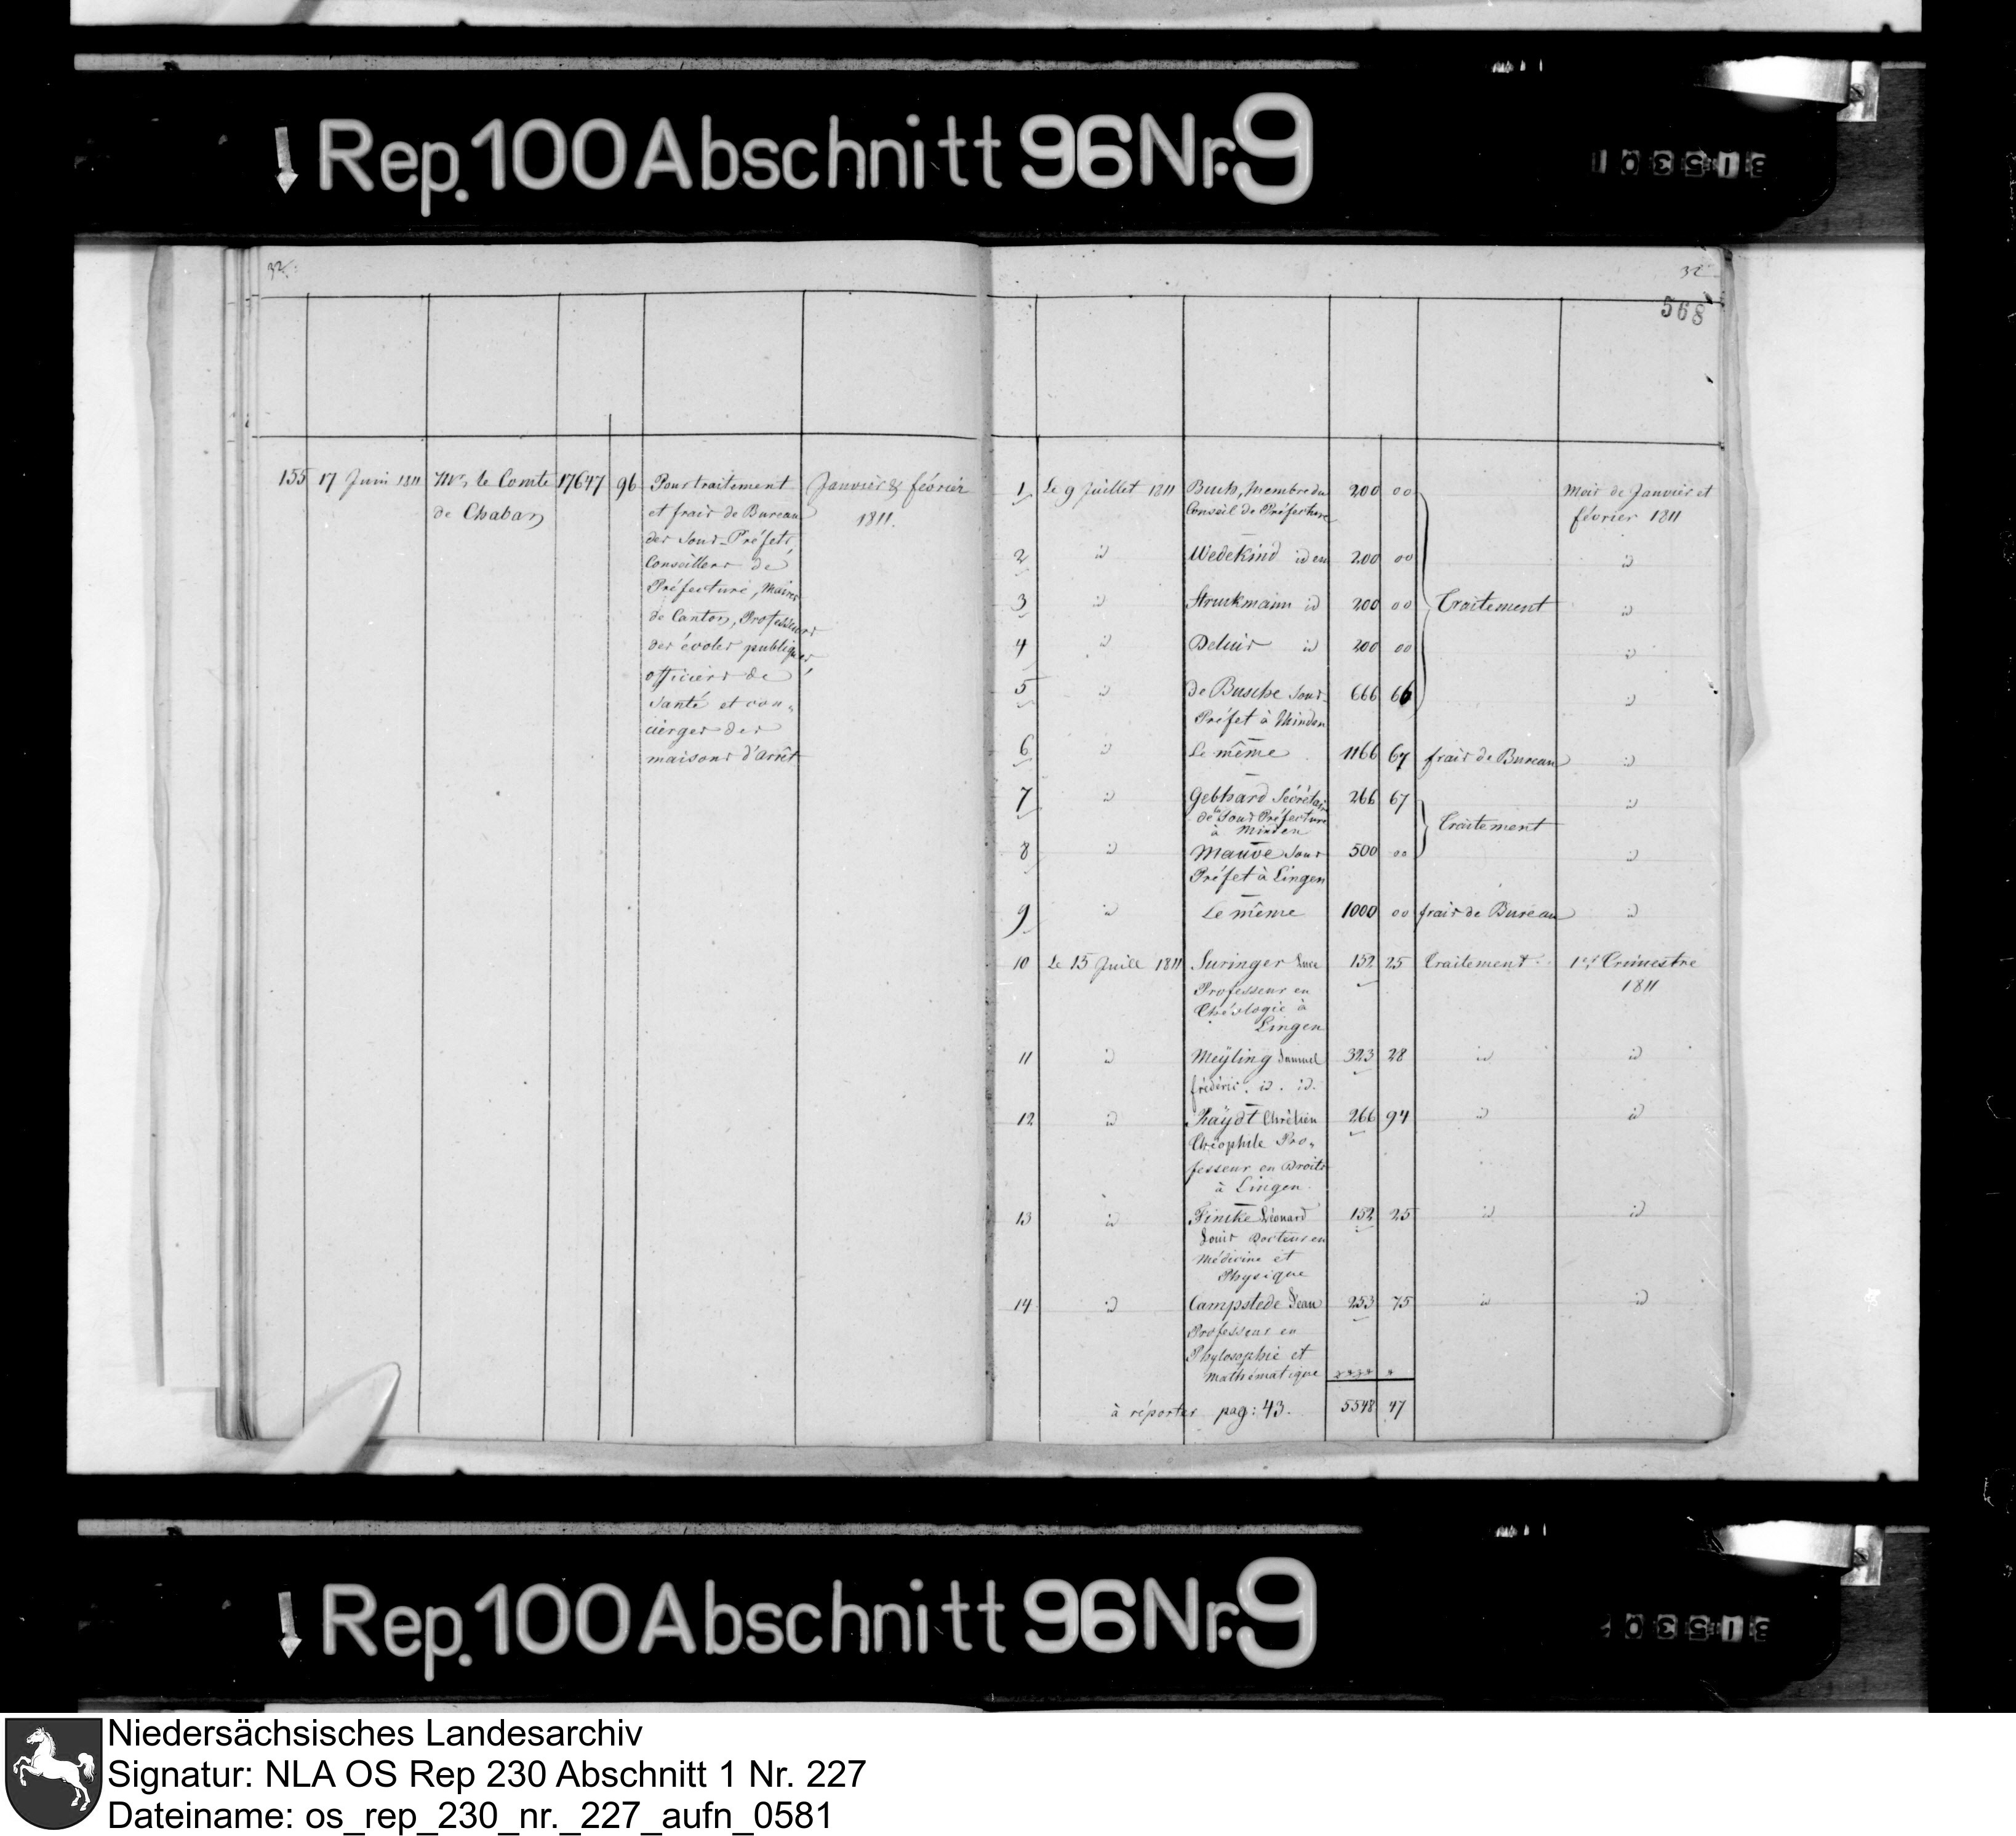 Rep. 100 Abschnitt 96 Nr. 9
32.
155 17 Juin 1811 Mr, le Comte 17647 96 Pour traitement Janvier & février
de Chaban et frais de Bureau 1811.
des Sous-Préfets,
Conseillers de
Préfecture, Maires
de Canton, Professeurs
des écoles publiques
officiers de
Santé et con„
cierges des
maisons d'arrêt
32
568
1 Le 9 Juillet 1811 Buch, Membre du 200 00 Mois de Janvier et
Conseil de Préfecture février 1811
2 id Wedekind idem 200 00 id
3 id Struckmann id 200 00 Traitement id
4 id Delius id 200 00 id
5 id de Busche Sous- 666 66 id
Préfet à Minden
6 id Le même 1166 67 frais de Bureau id
7 id Gebhard Sécrétaire 266 67 id
de la Sous Préfecture Traitement
à Minden
8 id Mauve Sous 500 00 id
Préfet à Lingen
9 id Le même 1000 00 frais de Bureau id
10 Le 15 Juill 1811 Suringer Luce 152 25 Traitement 1er Trimestre
Professeur en 1811
Théologie à
Lingen
11 id Meÿling Samuel 323 28 id id
fréderic. id. id.
12 id Thaÿdt Chrétien 266 94 id id
Théophile Pro„
fesseur en Droits
à Lingen
13 id Fincke Léonard 152 25 id id
Louis Docteur en
Médicine et
Physique
14 id Campstede Jean 253 75 id id
Professeur en
Phylosophie et
Mathématique
à réporter pag: 43. 5548 47
Rep. 100 Abschnitt 96 Nr. 9
Niedersächsisches Landesarchiv
Signatur: NLA OS Rep 230 Abschnitt 1 Nr. 227
Dateiname: os_rep_230_nr._227_aufn_0581